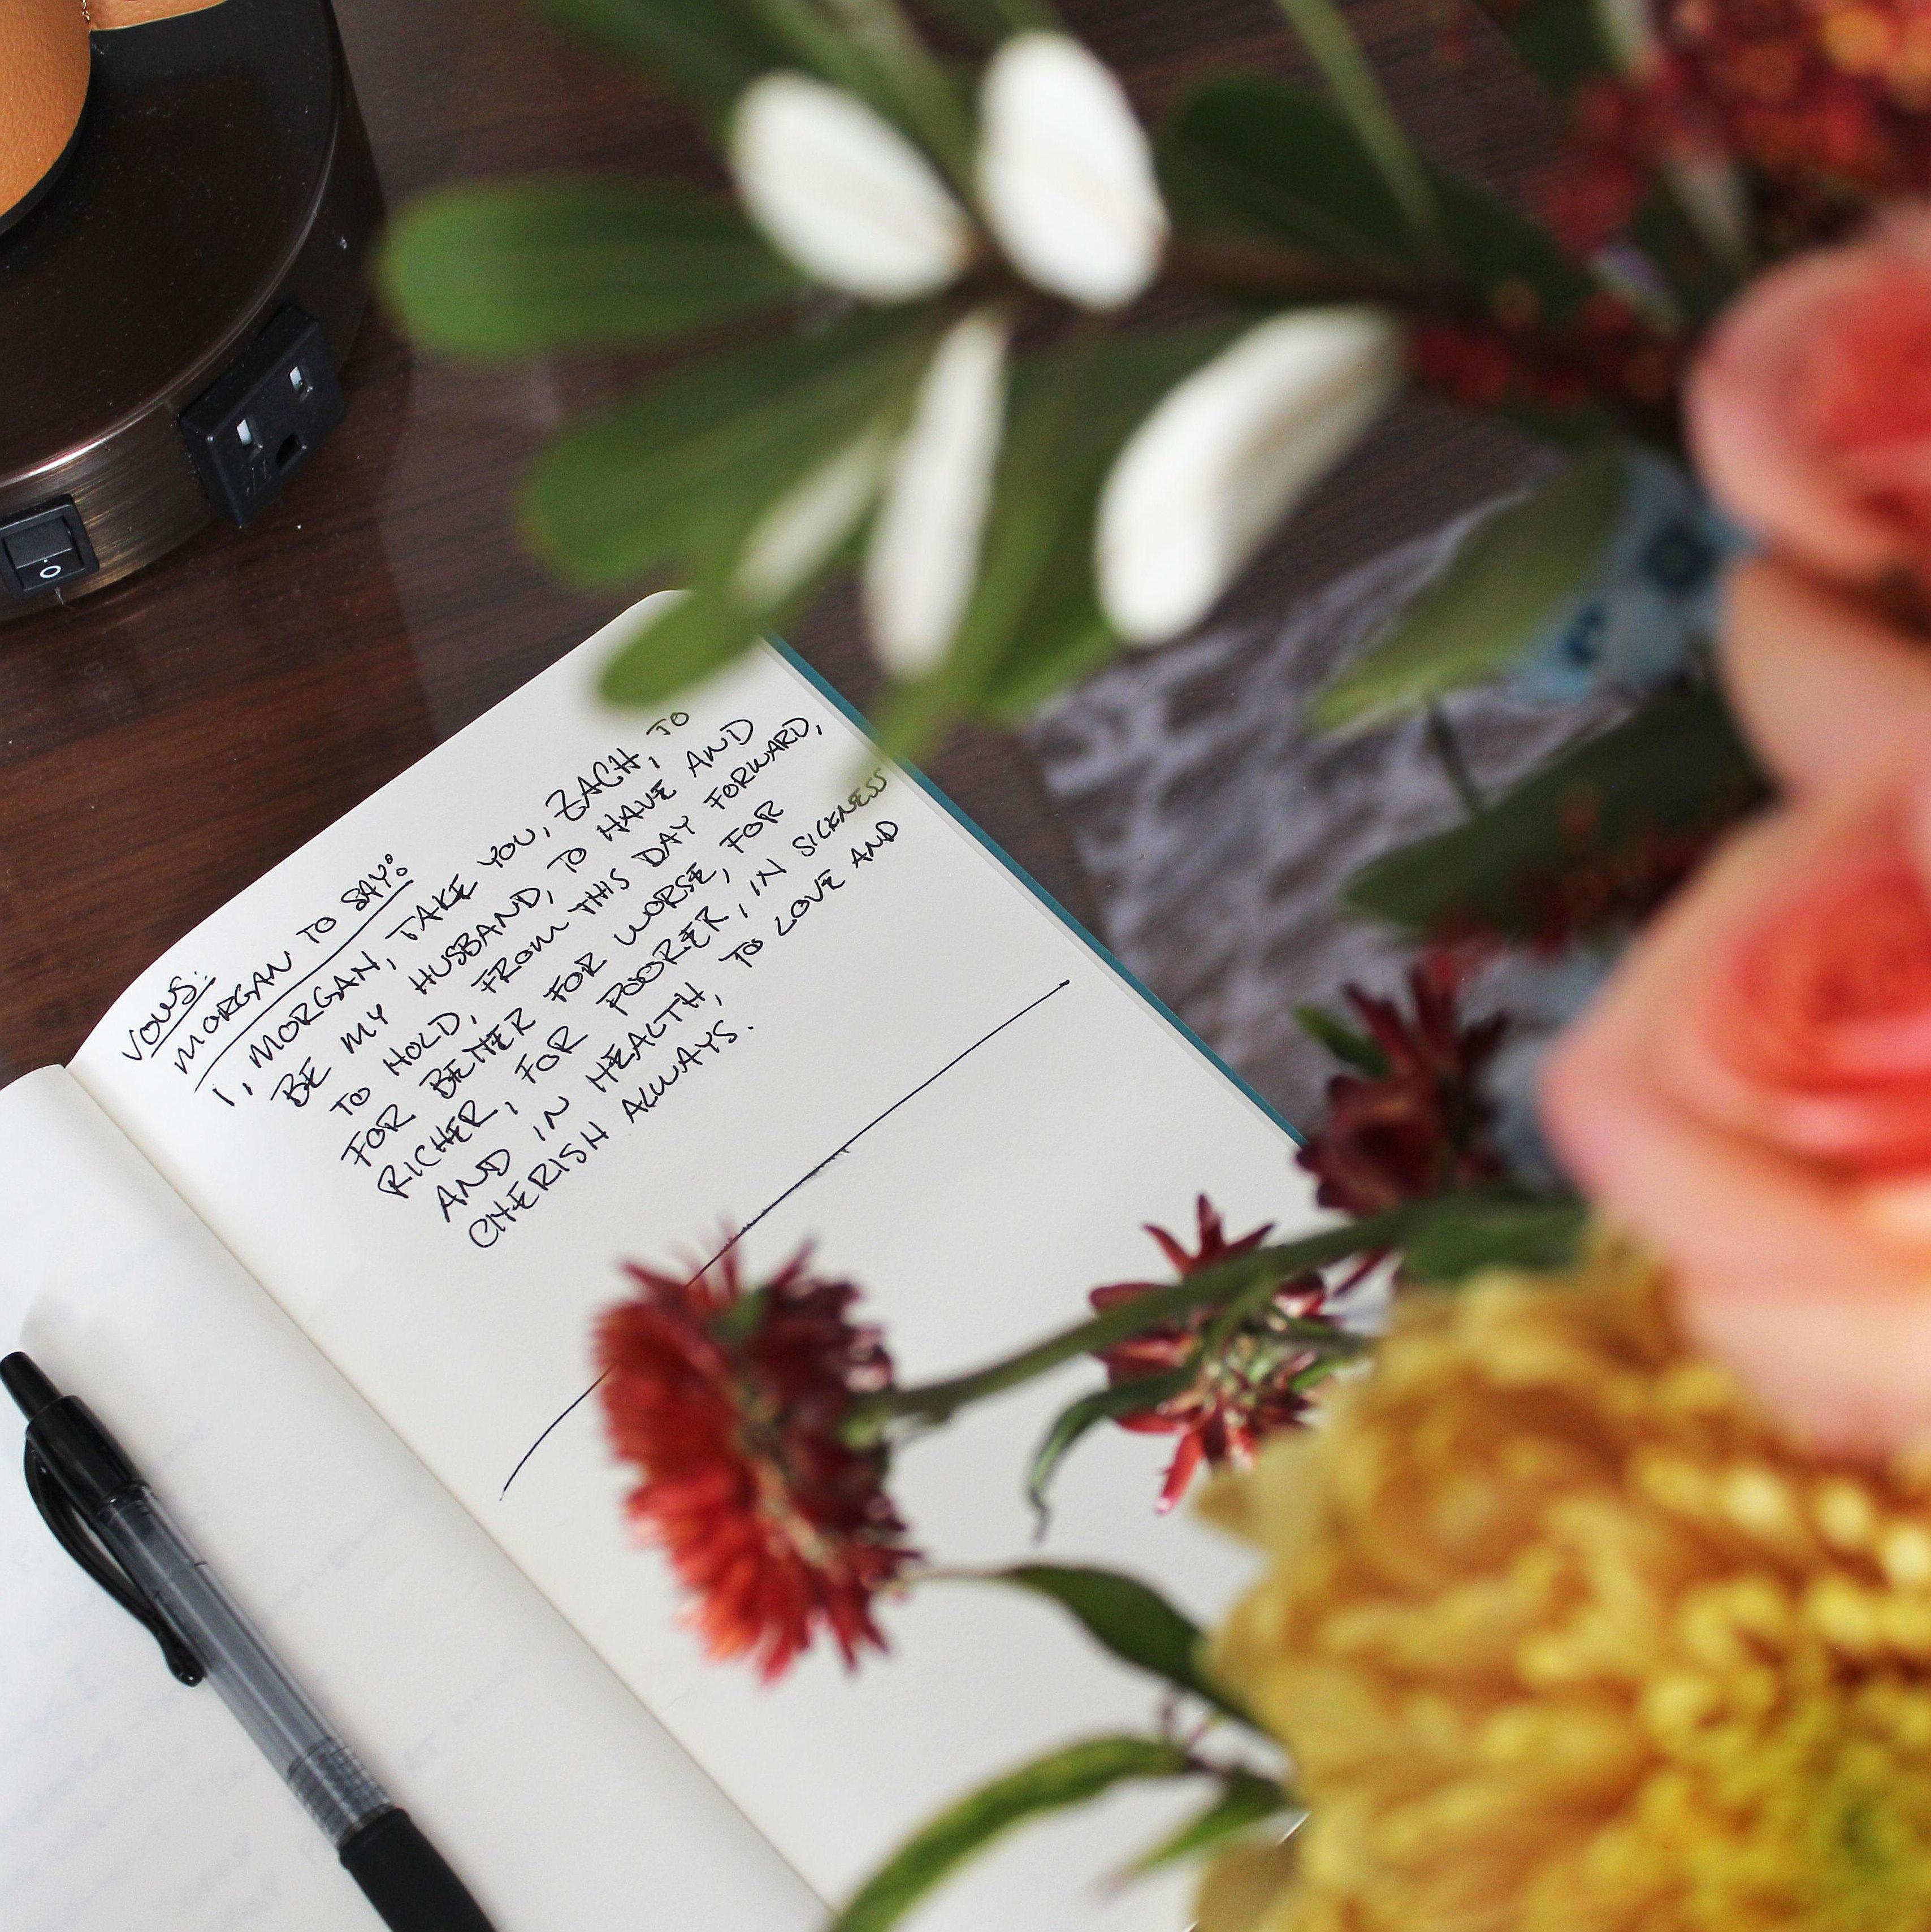 VOWS:
MORGAN TO SAY:
I, MORGAN, TAKE YOU, ZACH, TO
BE MY HUSBAND, TO HAVE AND
TO HOLD, FROM THIS DAY FORWARD,
FOR BETTER FOR WORSE, FOR
RICHER, FOR POORER, IN SICKNESS
AND IN HEALTH, TO LOVE AND
CHERISH ALWAYS.